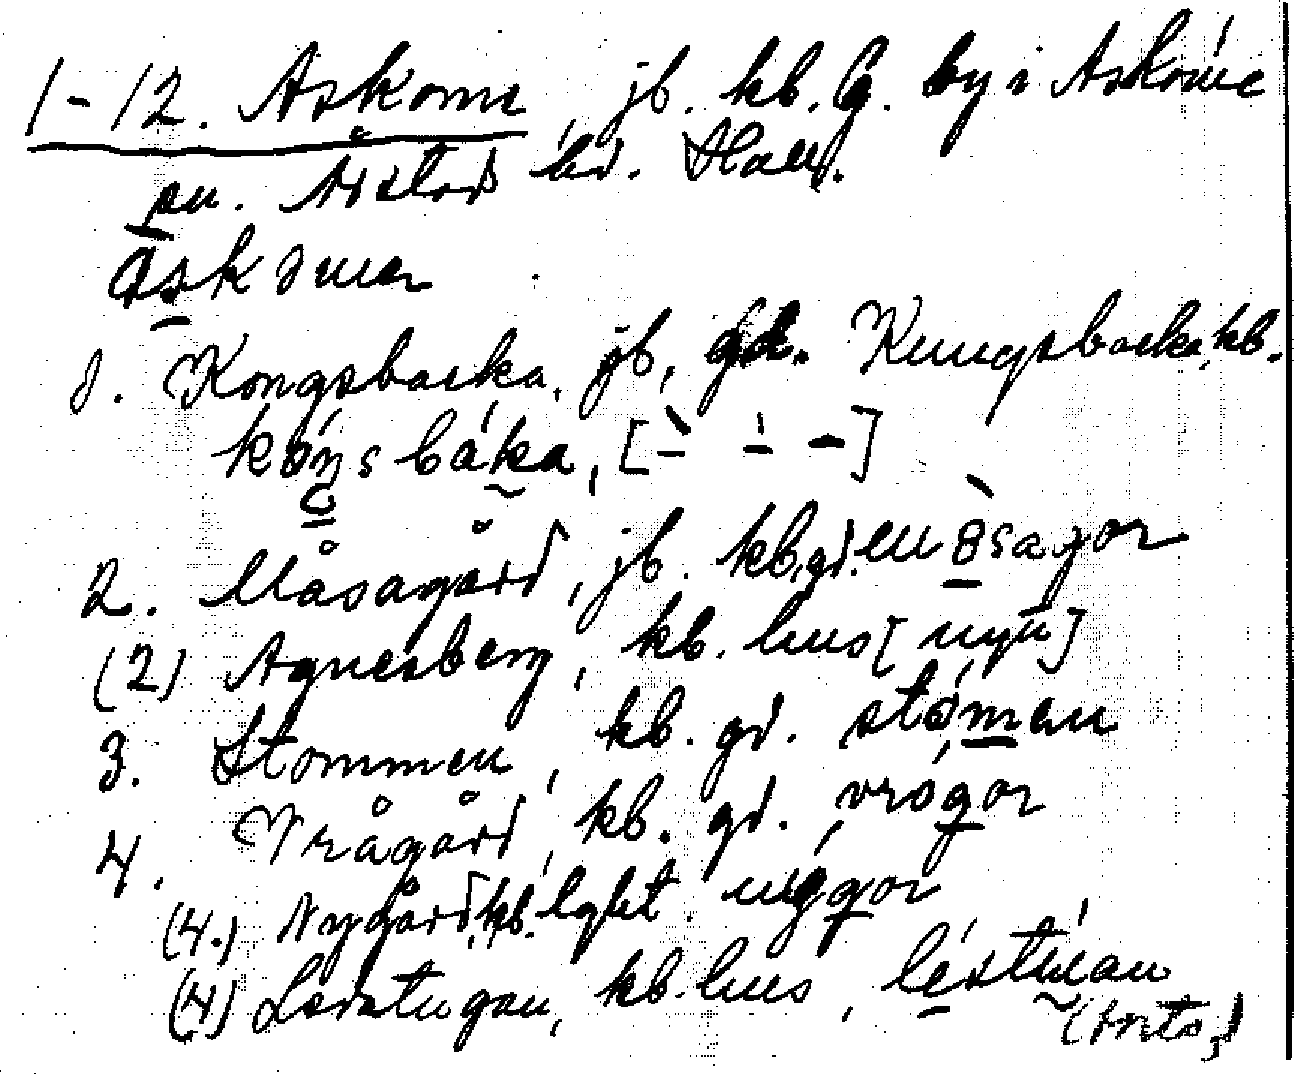 1-12. Askome jb. kb. G. by i Askome
sn. Årstad hd. Hall.
áskomen
1. Kongsbacka, jb, gd. Kungsbacka, kb.
2. Måsagård, jb. kb. gd. mòsagor
(2) Agnesberg, kb. hus [nyn]
3. Stommen, kb. gd. stómen
4. Vrågård, kb. gd. vrógor
(4.) Nygård, kb. lght. nýgor
(4) Lerstugan, kb. hus, léstúan
(forts.)